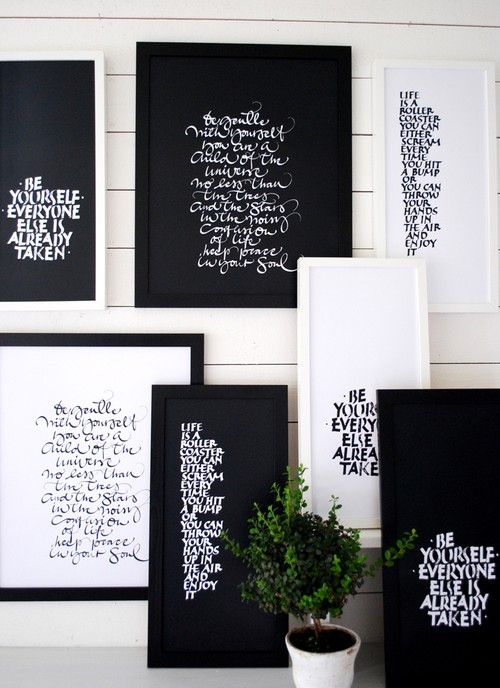 BE
YOURSELF·
·EVERYONE
ELSE IS
ALREADY
TAKEN·
Be gentle
with yourself
you are a
child of the
universe
no less than
the trees
and the stars
in the noisy
confusion
of life
keep peace
in your soul
LIFE
IS A
ROLLER
COASTER
YOU CAN
EITHER
SCREAM
EVERY
TIME
YOU HIT
A BUMP
OR
YOU CAN
THROW
YOUR
HANDS
UP IN
THE AIR
AND
ENJOY
IT
Be gentle
with yourself
you are a
child of the
universe
no less than
the trees
and the stars
in the noisy
confusion
of life
keep peace
in your soul
LIFE
IS A
ROLLER
COASTER
YOU CAN
EITHER
SCREAM
EVERY
TIME
YOU HIT
A BUMP
OR
YOU CAN
THROW
YOUR
HANDS
UP IN
THE AIR
AND
ENJOY
IT
·BE
YOURS
·EVERY
ELSE
ALREA
TAKE
·BE
YOURSELF·
·EVERYONE
ELSE IS
ALREADY
TAKEN·